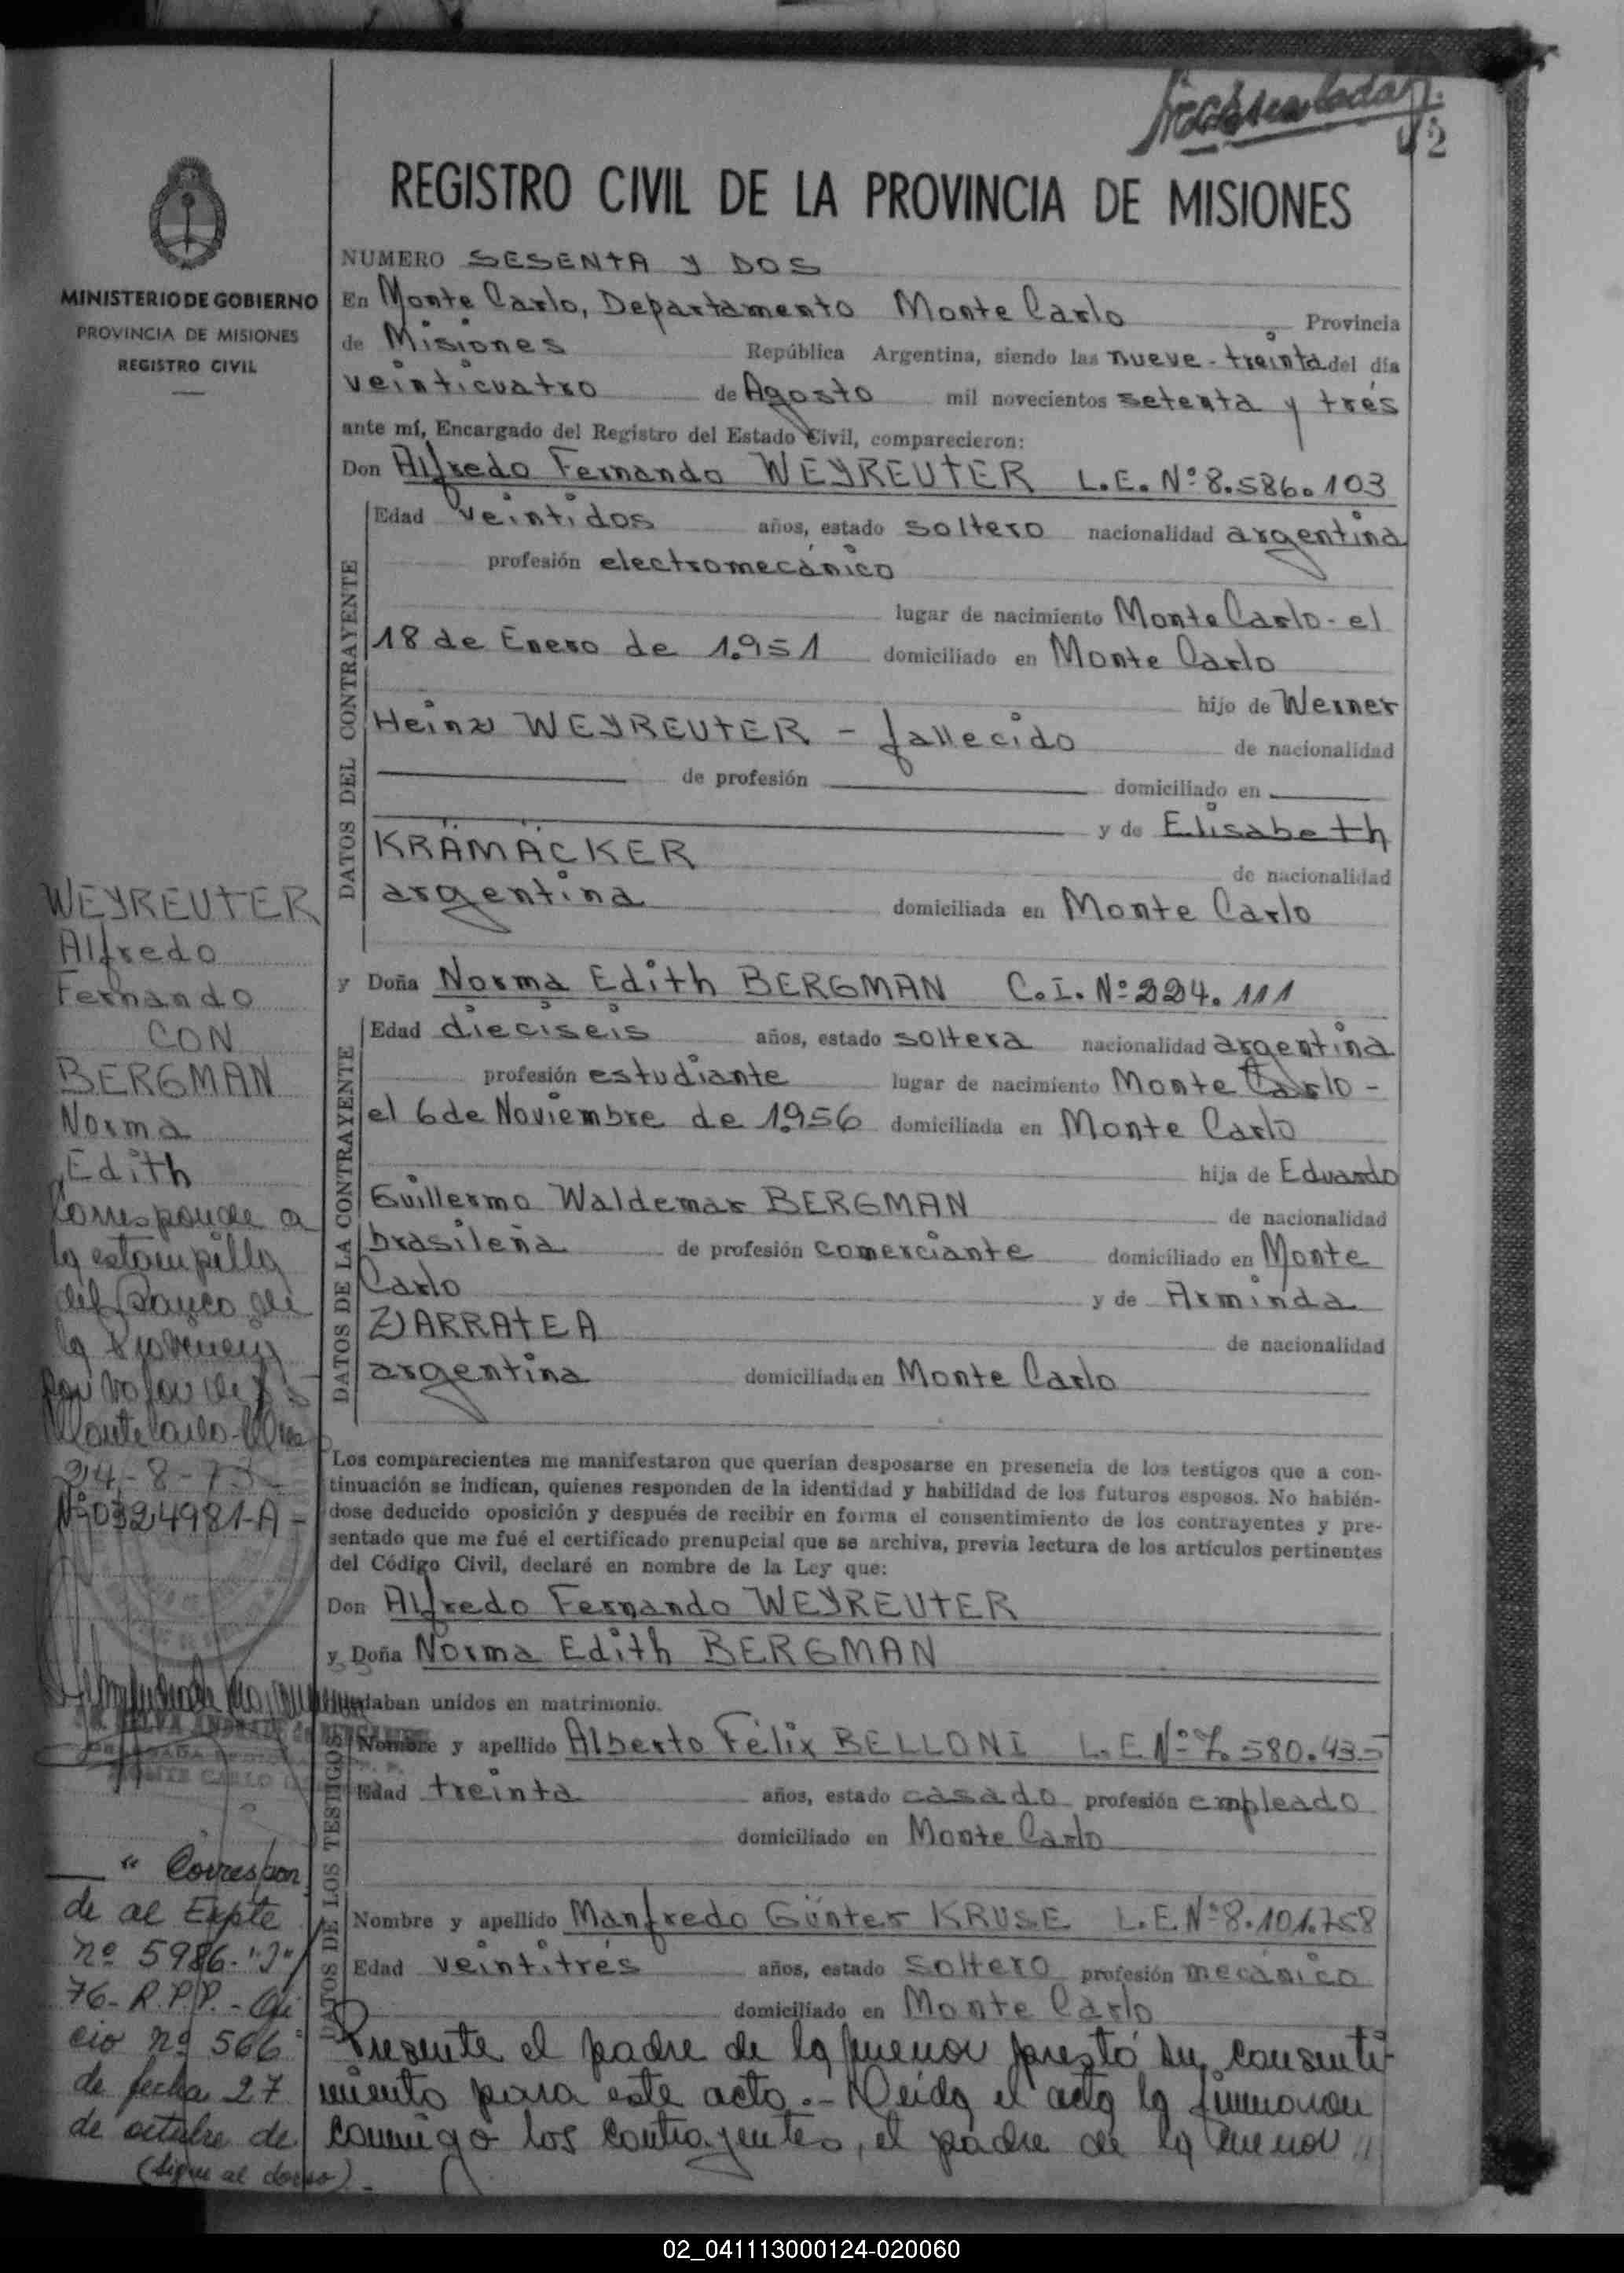 02
REGISTRO CIVIL DE LA PROVINCIA DE MISIONES
MINISTERIO DE GOBIERNO
PROVINCIA DE MISIONES
REGISTRO CIVIL
NUMERO SESENTA Y DOS
En Monte Carlo, Departamento Monte Carlo Provincia
de Misiones República Argentina, siendo las nueve-treinta del día
veinticuatro de Agosto mil novecientos setenta y tres
ante mí, Encargado del Registro del Estado Civil, comparecieron:
Don Alfredo Fernando WEYREUTER L.E. Nº 8.586.103
DATOS DEL CONTRAYENTE
Edad veintidos años, estado soltero nacionalidad argentina
profesión electromecánico
lugar de nacimiento Monte Carlo - el
18 de Enero de 1.951 domiciliado en Monte Carlo
hijo de Werner
Heinz WEYREUTER - fallecido de nacionalidad
de profesión domiciliado en
y de Elisabeth
KRÄMÄCKER de nacionalidad
argentina domiciliada en Monte Carlo
y Doña Norma Edith BERGMAN C.I. Nº 224.111
DATOS DE LA CONTRAYENTE
Edad dieciseis años, estado soltera nacionalidad argentina
profesión estudiante lugar de nacimiento Monte Carlo -
el 6 de Noviembre de 1.956 domiciliada en Monte Carlo
hija de Eduardo
Guillermo Waldemar BERGMAN de nacionalidad
brasileña de profesión comerciante domiciliado en Monte
Carlo y de Arminda
ZIARRATEA de nacionalidad
argentina domiciliada en Monte Carlo
Los comparecientes me manifestaron que querían desposarse en presencia de los testigos que a con-
tinuación se indican, quienes responden de la identidad y habilidad de los futuros esposos. No habién-
dose deducido oposición y después de recibir en forma el consentimiento de los contrayentes y pre-
sentado que me fué el certificado prenupcial que se archiva, previa lectura de los artículos pertinentes
del Código Civil, declaré en nombre de la Ley que:
Don Alfredo Fernando WEYREUTER
y Doña Norma Edith BERGMAN
quedaban unidos en matrimonio.
DATOS DE LOS TESTIGOS
Nombre y apellido Alberto Félix BELLONI L.E. Nº 7.580.435
Edad treinta años, estado casado profesión empleado
domiciliado en Monte Carlo
Nombre y apellido Manfredo Günter KRUSE L.E. Nº 8.101.758
Edad veintitrés años, estado soltero profesión mecánico
domiciliado en Monte Carlo
Presente el padre de la menor prestó su consenti-
miento para este acto.- Leída el acta la firmaron
conmigo los contrayentes, el padre de la menor //
WEYREUTER
Alfredo
Fernando
CON
BERGMAN
Norma
Edith
Corresponde a
la estampilla
del Banco de
la Provincia
por valor de $ 5
Monte Carlo-Mnes
24-8-73-
Nº 0324981-A-
MONTE CARLO
" Correspon
de al Expte
nº 5986-"J"/
76-R.P.P.- Ofi
cio nº 566
de fecha 27
de octubre de
(Sigue al dorso)
02_041113000124-020060